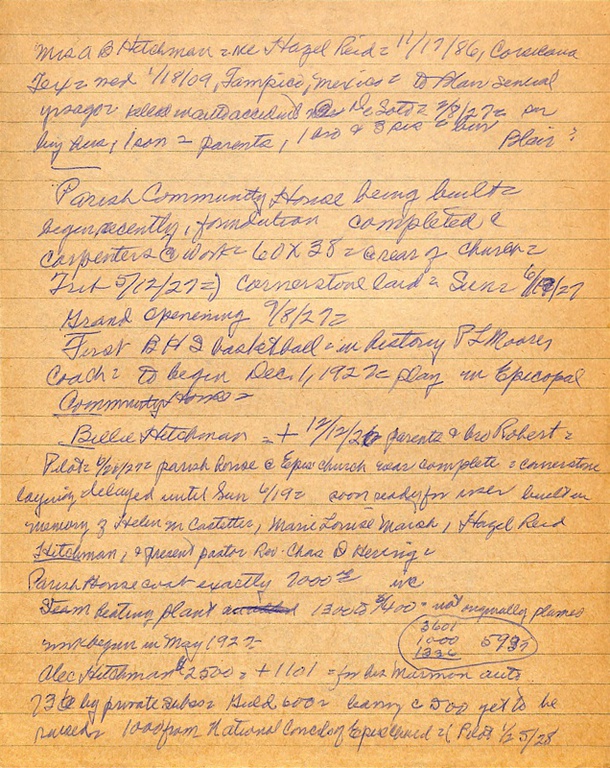 Mrs A B Hitchman = nee Hazel Reid = 11/17/86, Corsicana
Tex = med 1/18/09, Tampico, Mexico = to Blair several
yrs ago = killed in auto accident De Soto = 2/8/27 = sur
by hus, 1 son = parents, 1 bro & 3 sis = bur Blair ?
Parish Community House being built =
begun recently, foundation completed &
carpenters @ work = 60 X 38 = @ rear of church =
Trib 5/12/27 = Cornerstone laid = Sun = 6/19/27
Grand opening 9/8/27 =
First B H S basketball = in history P L Moores
coach = to begin Dec. 1, 1927 = play in Episcopal
Community House =
Billie Hitchman = + 12/12/26 parents & bro Robert =
Pilot = parish house @ Epis church near complete = cornerstone
laying delayed until Sun 6/19 = soon ready for use = built in
memory of Helen M Castetter, Marie Louise Marsh, Hazel Reid
Hitchman, & present pastor Rev. Chas D Hering =
Parish House cost exactly 7000 =
heating plant 1300 to 1400 = not originally planned
work begun in May 1927 =
3601
1000
1336
5937
Alec Hitchman $2500 = + 1101 = for his Marmon auto
736 by private subs = Guild 600 = leaving @ 500 yet to be
raised = 1000 from National Council of Epis church = (Pilot 1/25/28